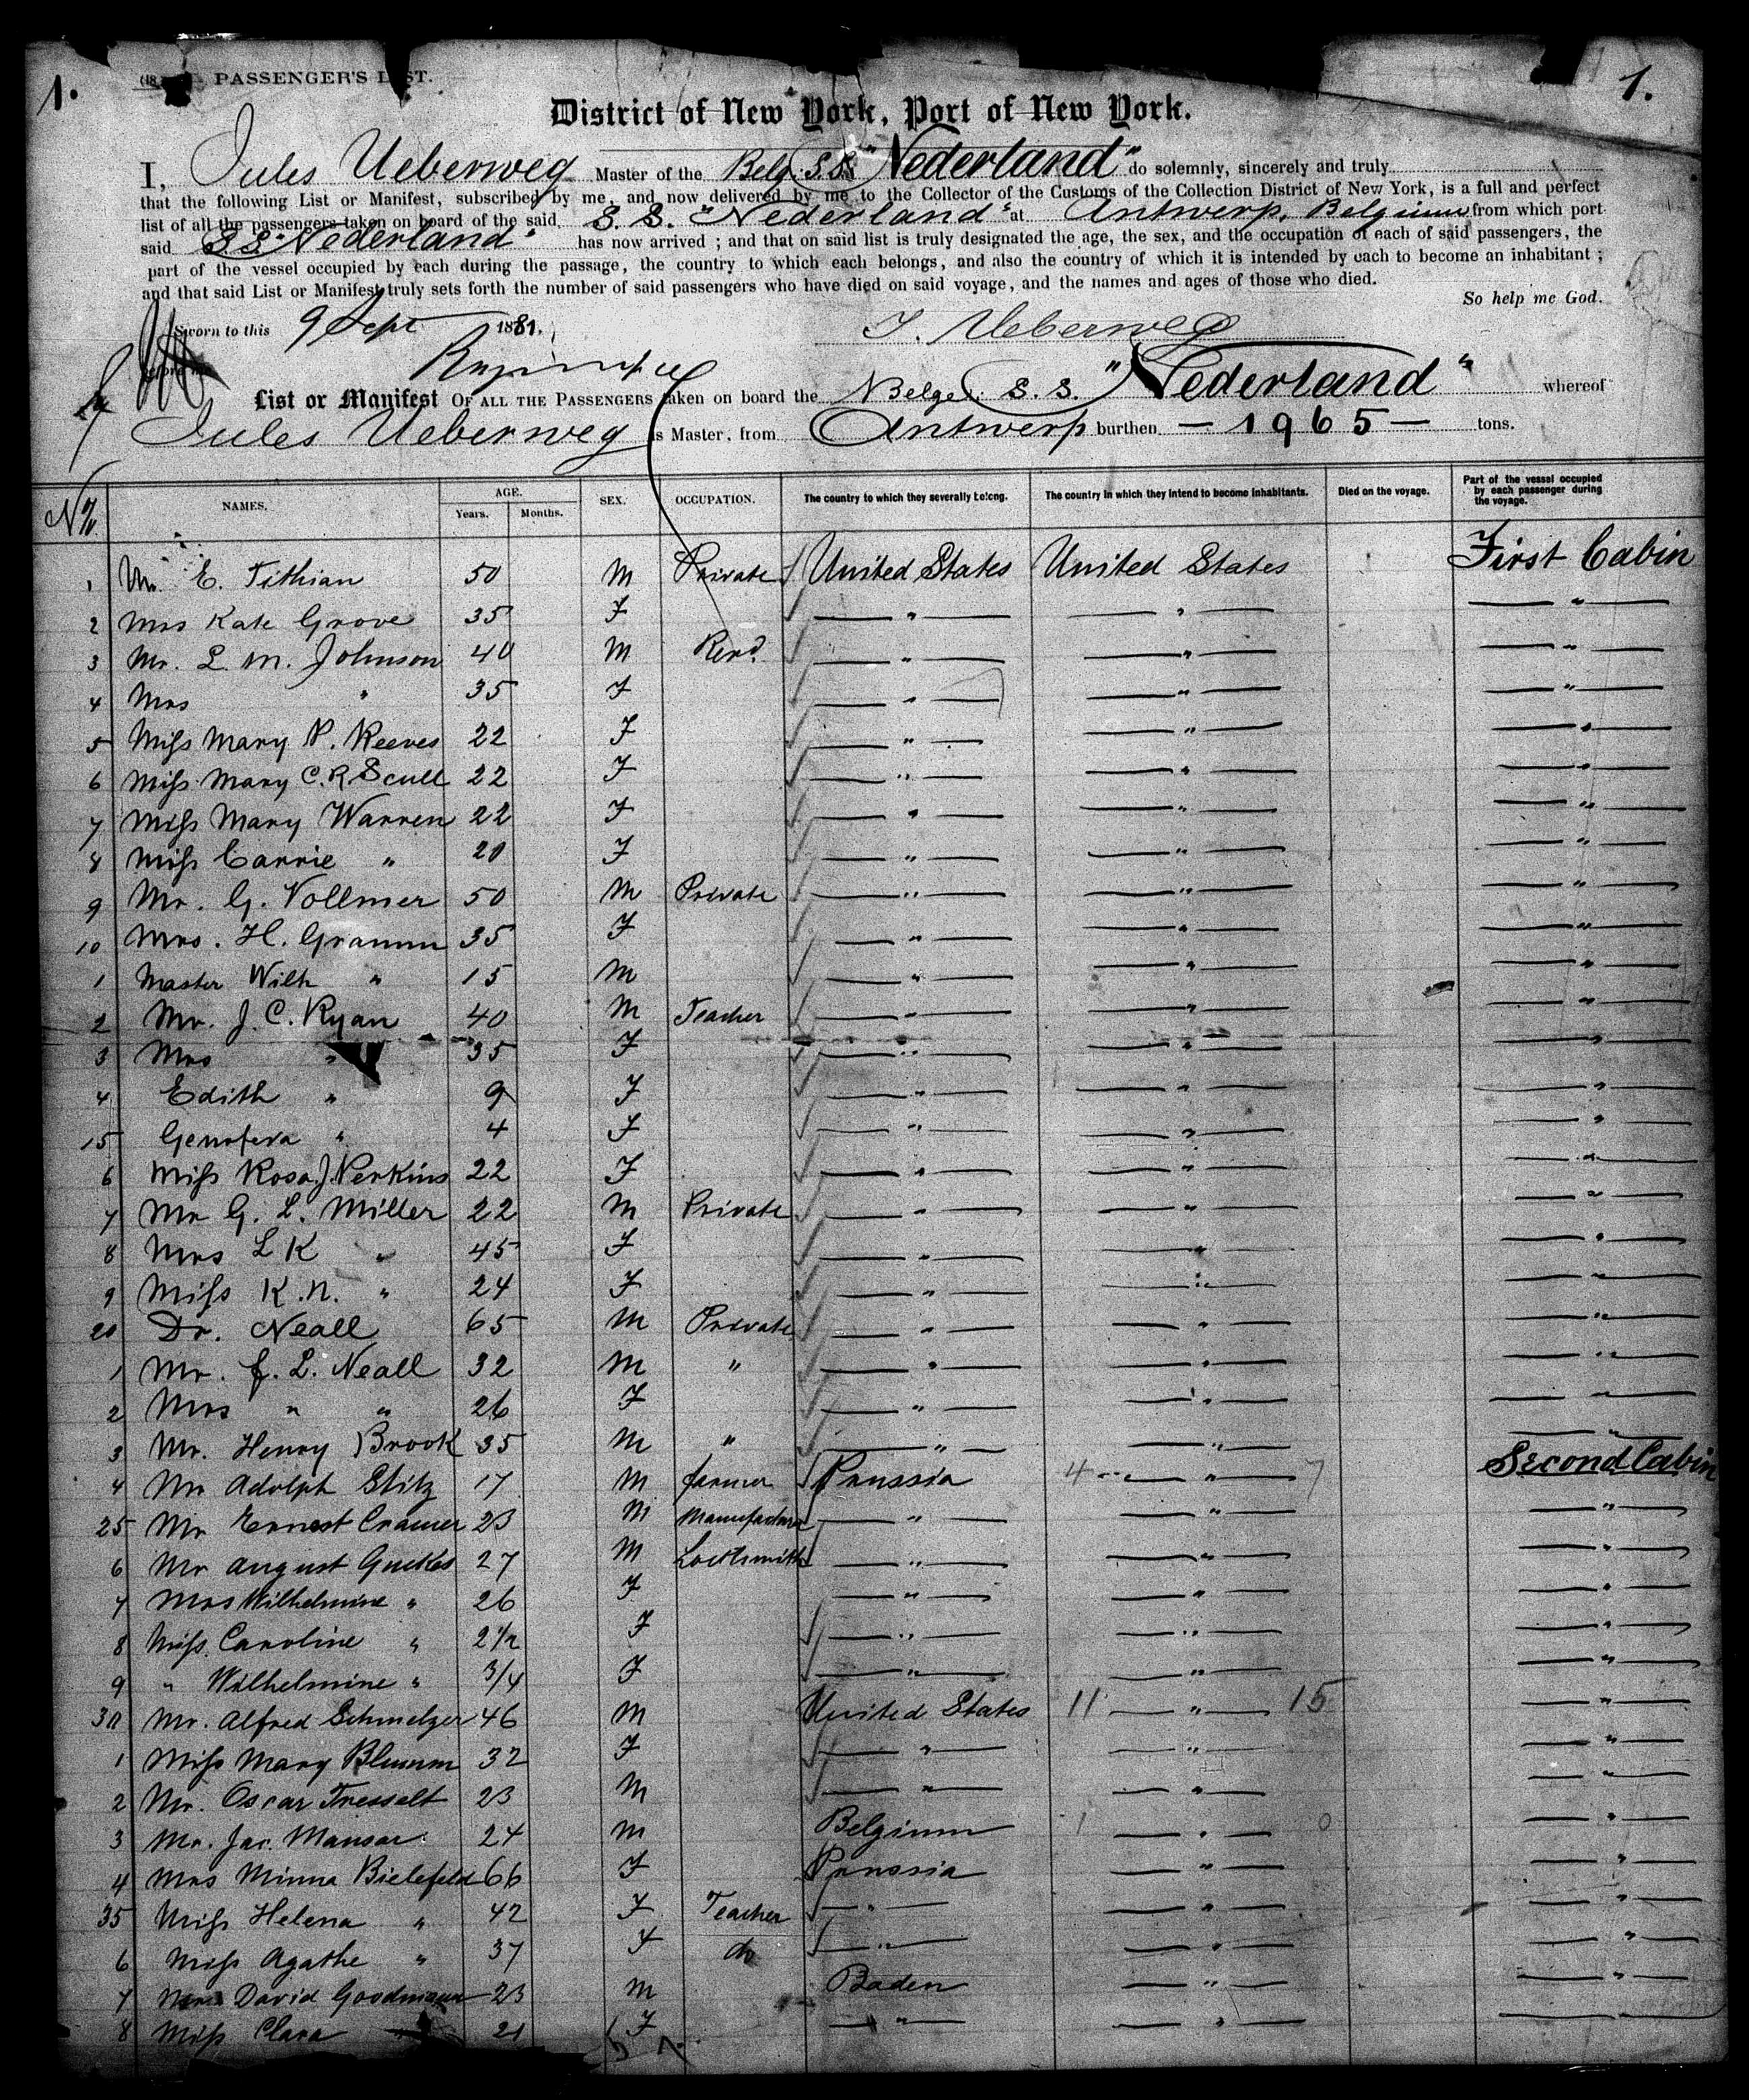 1. PASSENGER'S LIST. 1.
District of New York, Port of New York.
I, Jules Ueberweg Master of the Belg. S.S. "Nederland" do solemnly, sincerely and truly
that the following List or Manifest, subscribed by me, and now delivered by me to the Collector of the Customs of the Collection District of New York, is a full and perfect
list of all the passengers taken on board of the said S. S. "Nederland" at Antwerp, Belgium from which port
said S.S. "Nederland" has now arrived ; and that on said list is truly designated the age, the sex, and the occupation of each of said passengers, the
part of the vessel occupied by each during the passage, the country to which each belongs, and also the country of which it is intended by each to become an inhabitant ;
and that said List or Manifest truly sets forth the number of said passengers who have died on said voyage, and the names and ages of those who died.
So help me God.
Sworn to this 9 Sept 1881. J. Ueberweg
before me
List or Manifest OF ALL THE PASSENGERS taken on board the Belge. S. S. "Nederland" whereof
Jules Ueberweg is Master, from Antwerp burthen — 1965 — tons.
No. NAMES. AGE. Years. Months. SEX. OCCUPATION. The country to which they severally belong. The country in which they intend to become inhabitants. Died on the voyage. Part of the vessel occupied by each passenger during the voyage.
1 Mr. E. Tithian 50 M Private United States United States First Cabin
2 Mrs Kate Grove 35 F " " "
3 Mr. L. M. Johnson 40 M Revd. " " "
4 Mrs " 35 F " " "
5 Miss Mary P. Reeves 22 F " " "
6 Miss Mary C. R. Scull 22 F " " "
7 Miss Mary Warren 22 F " " "
8 Miss Carrie " 20 F " " "
9 Mr. G. Vollmer 50 M Private " " "
10 Mrs. H. Gramm 35 F " " "
1 Master Wilh " 15 M " " "
2 Mr. J. C. Ryan 40 M Teacher " " "
3 Mrs " 35 F " " "
4 Edith " 9 F " " "
15 Genofeva " 4 F " " "
6 Miss Rosa J. Perkins 22 F " " "
7 Mr G. L. Miller 22 M Private " " "
8 Mrs L K " 45 F " " "
9 Miss K. N. " 24 F " " "
20 Dr. Neall 65 M Private " " "
1 Mr. F. L. Neall 32 M " " " "
2 Mrs " " 26 F " " "
3 Mr. Henry Brook 35 M " " " "
4 Mr Adolph Stitz 17 M farmer Prussia 4 " 7 Second Cabin
25 Mr Ernest Cramer 23 M Manufacturer " " "
6 Mr August Guckes 27 M Locksmith " " "
7 Mrs Wilhelmine " 26 F " " "
8 Miss Caroline " 2 1/2 F " " "
9 " Wilhelmine " 3/4 F " " "
30 Mr. Alfred Schmelzer 46 M United States 11 " 15 "
1 Miss Mary Blumm 32 F " " "
2 Mr. Oscar Tresselt 23 M " " "
3 Mr. Jac. Mansar 24 M Belgium 1 " 0 "
4 Mrs Minna Bielefeld 66 F Prussia " "
35 Miss Helena " 42 F Teacher " " "
6 Miss Agathe " 37 F do " " "
7 Mr David Goodmann 23 M Baden " "
8 Miss Clara 21 F " "